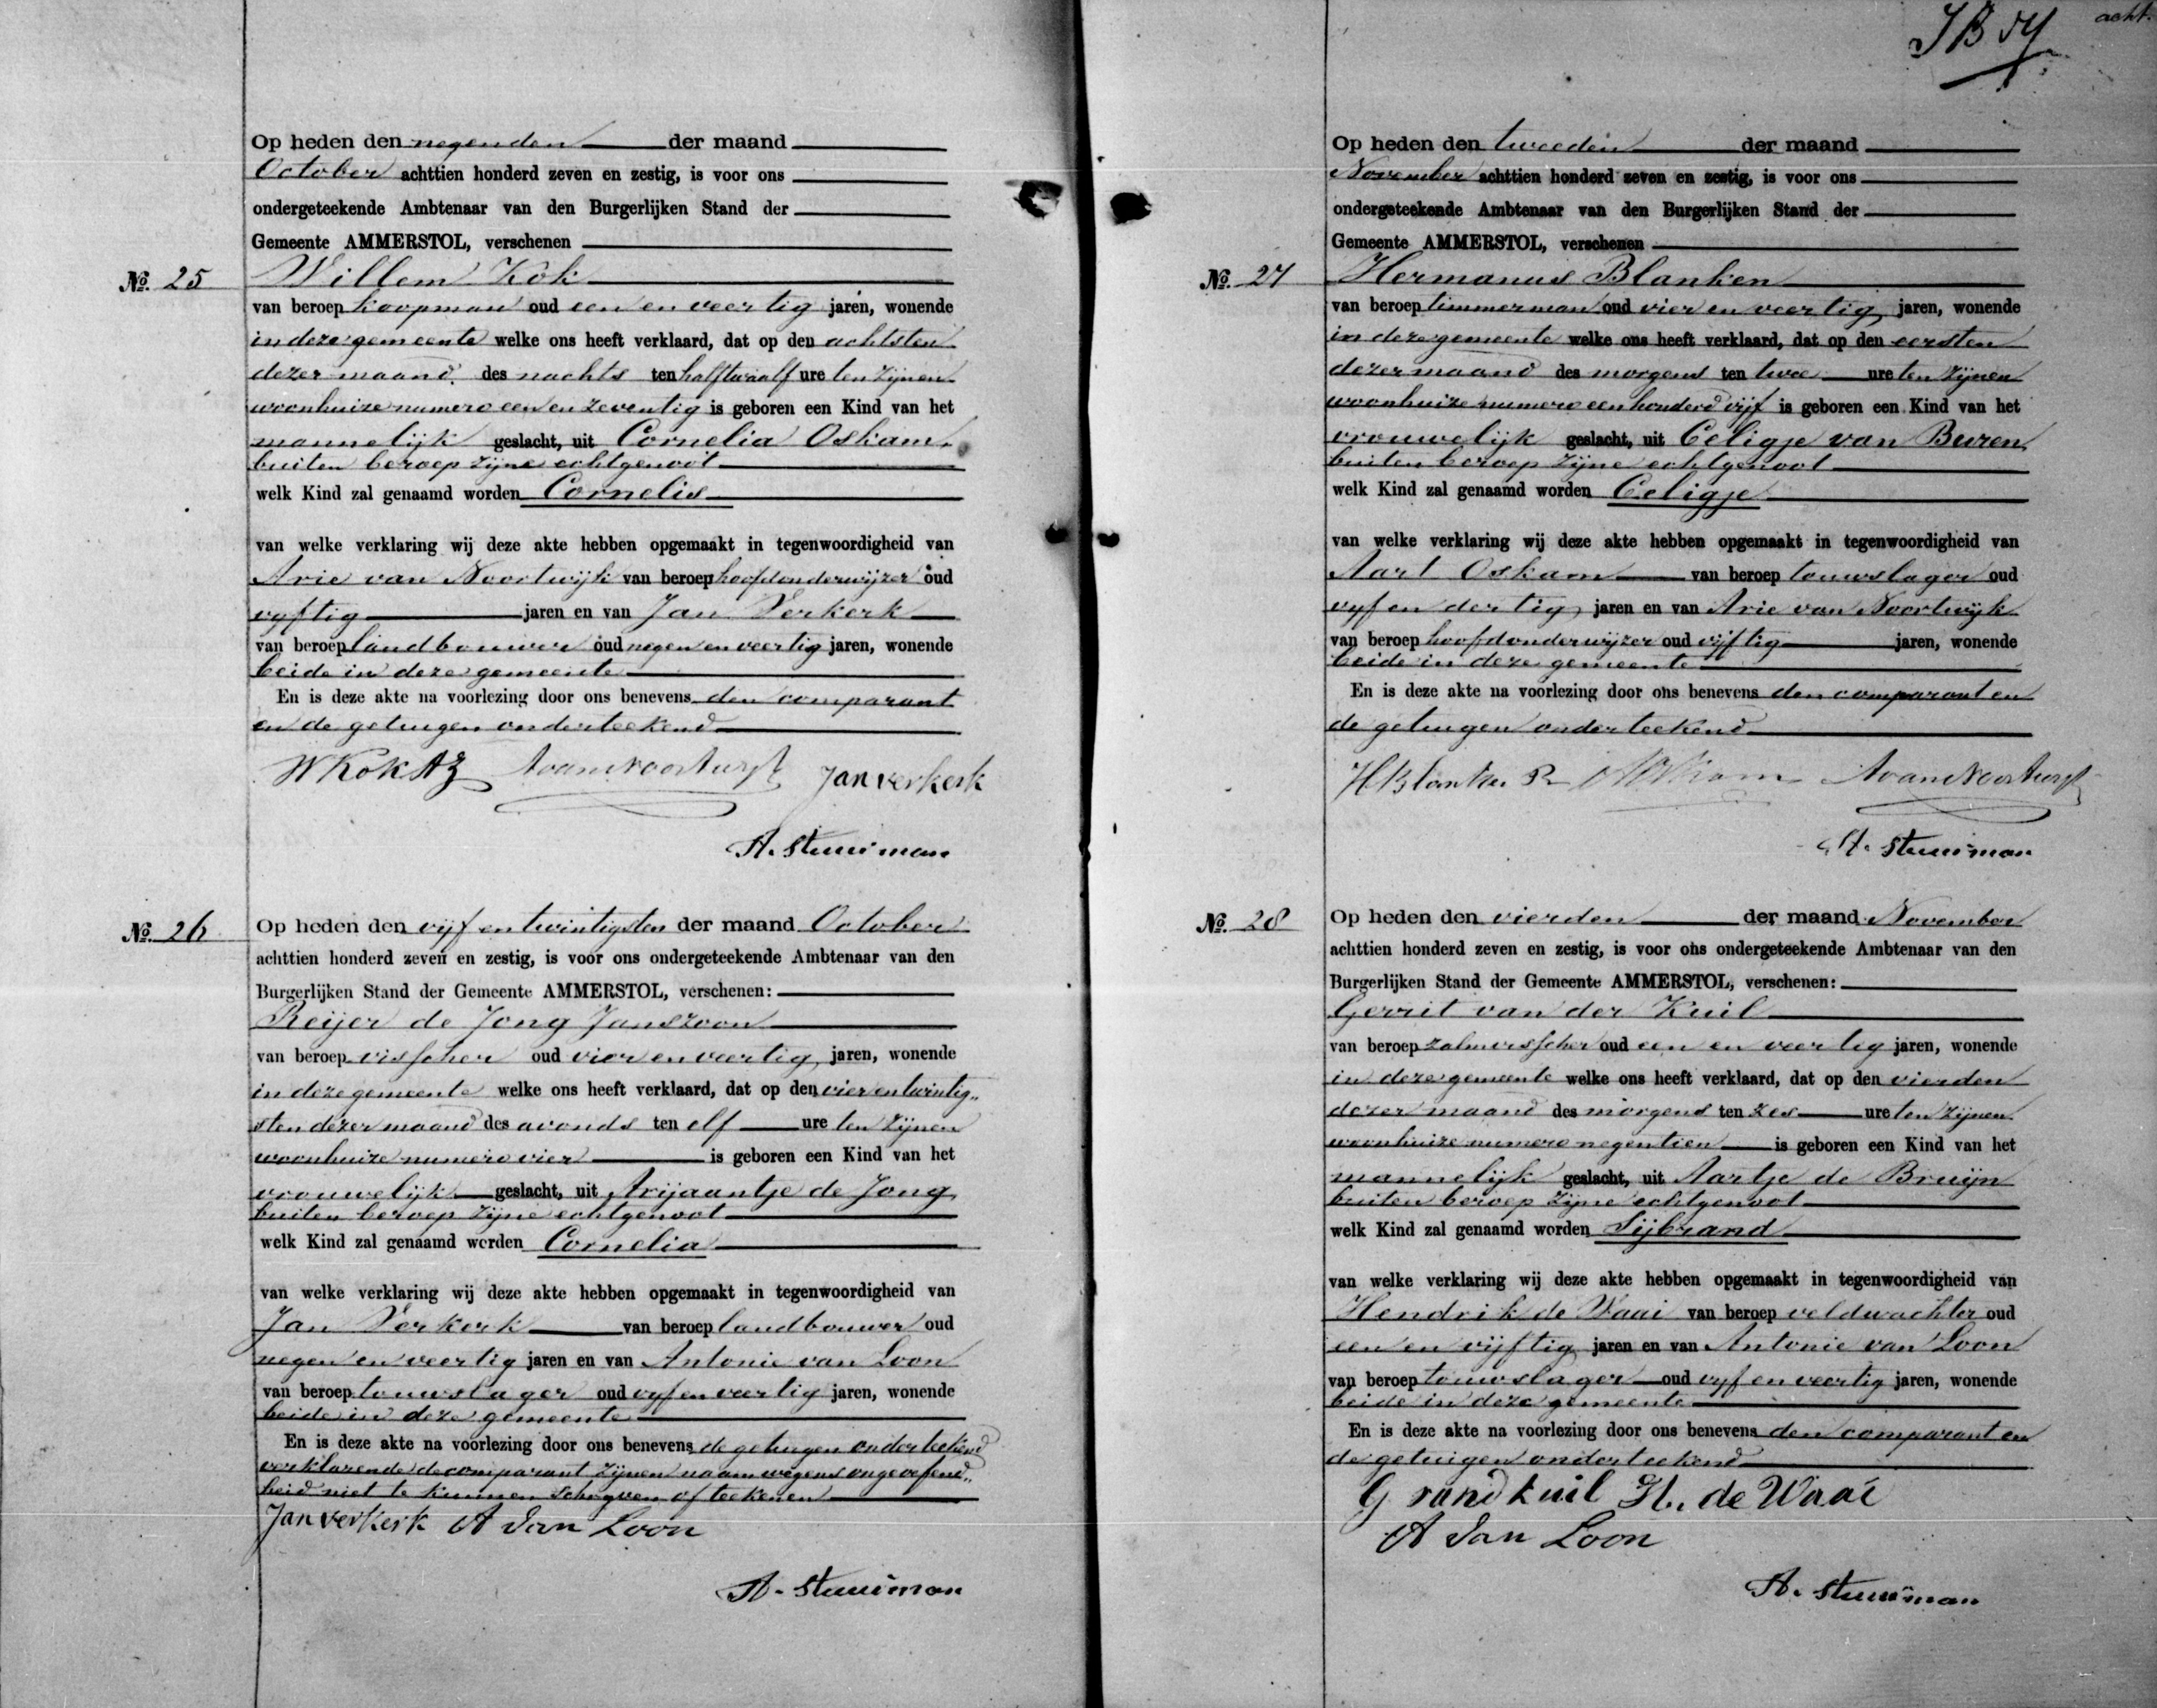 Op heden den negenden der maand
October achttien honderd zeven en zestig, is voor ons
ondergeteekende Ambtenaar van den Burgerlijken Stand der
Gemeente AMMERSTOL, verschenen
No. 25 Willem Kok
van beroep koopman oud een en veertig jaren, wonende
in deze gemeente welke ons heeft verklaard, dat op den achtsten
dezer maand des nachts ten half twaalf ure ten zijnen
woonhuize numero een en zeventig is geboren een Kind van het
mannelijk geslacht, uit Cornelia Oskam
buiten beroep zijne echtgenoot
welk Kind zal genaamd worden Cornelis
van welke verklaring wij deze akte hebben opgemaakt in tegenwoordigheid van
Arie van Noortwijk van beroep hoofdonderwijzer oud
vyftig jaren en van Jan Verkerk
van beroep landbouwer oud negen en veertig jaren, wonende
beide in deze gemeente
En is deze akte na voorlezing door ons benevens den comparant
en de getuigen onderteekend
W Kok AZ AvanNoortwijk Jan verkerk
A. Stuurman
No. 26 Op heden den vijf en twintigsten der maand October
achttien honderd zeven en zestig, is voor ons ondergeteekende Ambtenaar van den
Burgerlijken Stand der Gemeente AMMERSTOL, verschenen:
Reijer de Jong Janszoon
van beroep visscher oud vier en veertig jaren, wonende
in deze gemeente welke ons heeft verklaard, dat op den vier en twintig„
sten dezer maand des avonds ten elf ure ten zijnen
woonhuize numero vier is geboren een Kind van het
vrouwelijk geslacht, uit Arijaantje de Jong
buiten beroep zijne echtgenoot
welk Kind zal genaamd worden Cornelia
van welke verklaring wij deze akte hebben opgemaakt in tegenwoordigheid van
Jan Verkerk van beroep landbouwer oud
negen en veertig jaren en van Antonie van Loon
van beroep touwslager oud vyf en veertig jaren, wonende
beide in deze gemeente
En is deze akte na voorlezing door ons benevens de getuigen onderteekend
verklarende de comparant zijnen naam wegens ongeoefend„
heid niet te kunnen schryven of teekenen
Jan verkerk A van Loon
A. Stuurman
acht.
Op heden den tweeden der maand
November achttien honderd zeven en zestig, is voor ons
ondergeteekende Ambtenaar van den Burgerlijken Stand der
Gemeente AMMERSTOL, verschenen
No. 27 Hermanus Blanken
van beroep timmerman oud vier en veertig jaren, wonende
in deze gemeente welke ons heeft verklaard, dat op den eersten
dezer maand des morgens ten twee ure ten zijnen
woonhuize numero een honderd vijf is geboren een Kind van het
vrouwelijk geslacht, uit Celigje van Buren
buiten beroep zijne echtgenoot
welk Kind zal genaamd worden Celigje
van welke verklaring wij deze akte hebben opgemaakt in tegenwoordigheid van
Aart Oskam van beroep touwslager oud
vyf en dertig jaren en van Arie van Noortwyk
van beroep hoofdonderwijzer oud vijftig jaren, wonende
beide in deze gemeente
En is deze akte na voorlezing door ons benevens den comparant en
de getuigen onderteekend
H Blanken A Oskam AvanNoortwijk
A. Stuurman
No. 28 Op heden den vierden der maand November
achttien honderd zeven en zestig, is voor ons ondergeteekende Ambtenaar van den
Burgerlijken Stand der Gemeente AMMERSTOL, verschenen:
Gerrit van der Kuil
van beroep zalmvisscher oud een en veertig jaren, wonende
in deze gemeente welke ons heeft verklaard, dat op den vierden
dezer maand des morgens ten zes ure ten zijnen
woonhuize numero negentien is geboren een Kind van het
mannelijk geslacht, uit Aartje de Bruijn
buiten beroep zijne echtgenoot
welk Kind zal genaamd worden Sijbrand
van welke verklaring wij deze akte hebben opgemaakt in tegenwoordigheid van
Hendrik de Waai van beroep veldwachter oud
een en vijftig jaren en van Antonie van Loon
van beroep touwslager oud vyf en veertig jaren, wonende
beide in deze gemeente
En is deze akte na voorlezing door ons benevens den comparant en
de getuigen onderteekend
G vand kuil H. de Waai
A van Loon
A. Stuurman